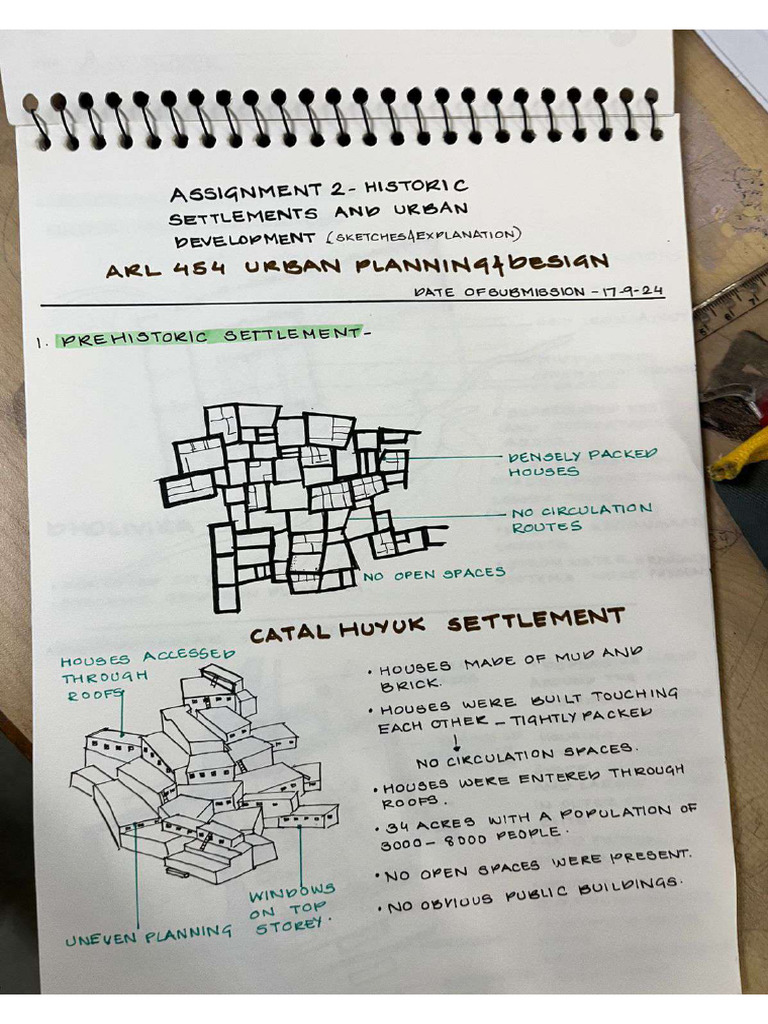 ASSIGNMENT 2 - HISTORIC
SETTLEMENTS AND URBAN
DEVELOPMENT (SKETCHES & EXPLANATION)
ARL 454 URBAN PLANNING & DESIGN
DATE OF SUBMISSION - 17-9-24
1. PREHISTORIC SETTLEMENT -
DENSELY PACKED
HOUSES
NO CIRCULATION
ROUTES
NO OPEN SPACES
CATAL HUYUK SETTLEMENT
HOUSES ACCESSED
THROUGH
ROOFS
• HOUSES MADE OF MUD AND
BRICK.
• HOUSES WERE BUILT TOUCHING
EACH OTHER - TIGHTLY PACKED
↓
NO CIRCULATION SPACES.
• HOUSES WERE ENTERED THROUGH
ROOFS.
• 34 ACRES WITH A POPULATION OF
3000 - 8000 PEOPLE.
• NO OPEN SPACES WERE PRESENT.
• NO OBVIOUS PUBLIC BUILDINGS.
WINDOWS
ON TOP
STOREY.
UNEVEN PLANNING